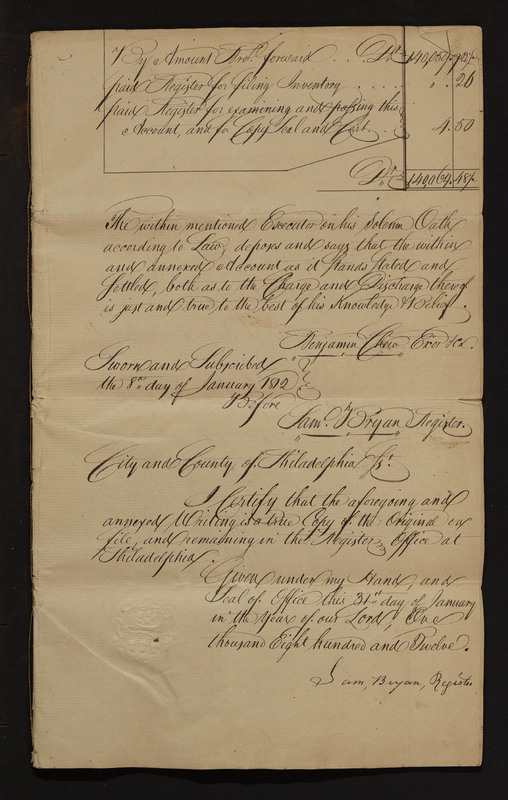 By Amount Bro.t forward . . . Dol.s 140,059. 78½
paid Register for filing Inventory . . . . " . 20
paid Register for examining and passing this
Account, and for Copy Seal and Cert. . . 4. 50
Dol.s 140,064. 48½
The within mentioned Executor on his Solemn Oath
according to Law, deposes and says that the within
and annexed Account as it Stands Stated and
Settled, both as to the Charge and Discharge thereof
is just and true, to the best of his Knowledge & Belief.
Benjamin Chew Exor &c.
Sworn and Subscribed
the 8th day of January 1812
Before
Sam.l Bryan Register.
City and County of Philadelphia Ss.t
I Certify that the aforegoing and
annexed Writing is a true Copy of the Original on
file, and remaining in the Registers Office at
Philadelphia.
Given under my Hand and
Seal of Office this 31st day of January
in the Year of our Lord, One
thousand Eight hundred and Twelve.
Sam, Bryan, Register